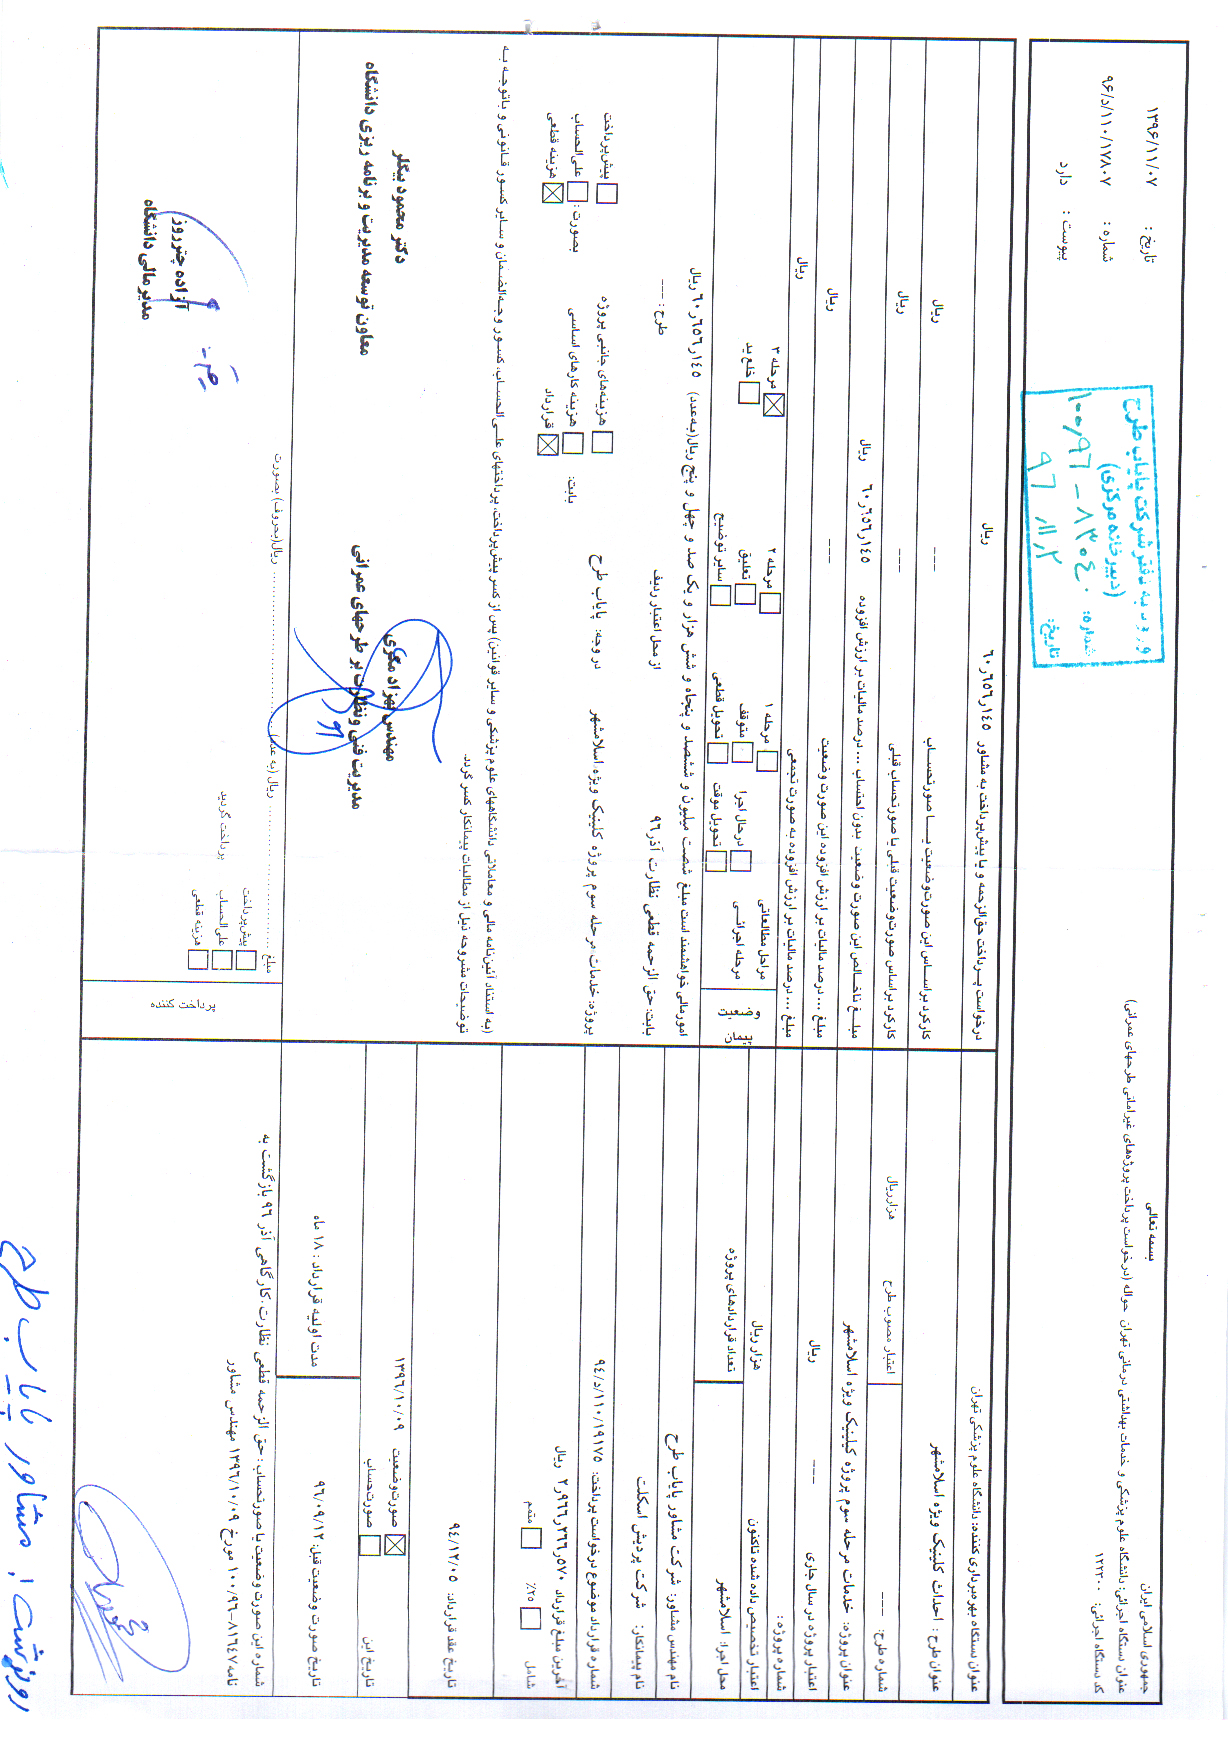 بسمه تعالی
جمهوری اسلامی ایران
عنوان دستگاه اجرائی: دانشگاه علوم پزشکی و خدمات بهداشتی درمانی تهران حواله (درخواست پرداخت پروژه‌های غیرامانی طرحهای عمرانی)
کد دستگاه اجرائی: ۱۲۲۳۰۰
تاریخ : ۱۳۹۶/۱۱/۰۷
شماره : ۹۶/د/۱۱۰/۱۷۸۰۷
پیوست : دارد
ورود به دفتر شرکت پایاب طرح
(دبیرخانه مرکزی)
شماره: ۱۰۰٫۹۶ - ۸۳۰۴۰
تاریخ: ۹۶/۱۱/۲
عنوان دستگاه بهره‌برداری کننده: دانشگاه علوم پزشکی تهران
عنوان طرح : احداث کلینیک ویژه اسلامشهر
شماره طرح: ---
اعتبار مصوب طرح هزارریال
عنوان پروژه: خدمات مرحله سوم پروژه کیلینیک ویژه اسلامشهر
اعتبار پروژه در سال جاری --- ریال
شماره پروژه :
اعتبار تخصیص داده شده تاکنون هزار ریال
محل اجرا: اسلامشهر
تعداد قراردادهای پروژه
نام مهندس مشاور: شرکت مشاور پایاب طرح
نام پیمانکار: شرکت پردیش اسکلت
شماره قرارداد موضوع درخواست پرداخت: ۹۴/د/۱۱۰/۱۹۱۷۵
آخرین مبلغ قرارداد ۲٫۹۶۶٫۲۶۶٫۵۷۰ ریال
شامل ۲۵% متمم
تاریخ عقد قرارداد: ۹۴/۱۲/۰۵
تاریخ این صورت‌وضعیت ۱۳۹۶/۱۰/۰۹
صورت‌حساب
تاریخ صورت وضعیت قبل: ۹۶/۰۹/۱۲
مدت اولیه قرارداد : ۱۸ ماه
شماره این صورت وضعیت یا صورتحساب : حق الزحمه قطعی نظارت ،کارگاهی آذر ۹۶ بازگشت به
نامه ۸۱۶۴۷-۱۰۰/۹۶ مورخ ۱۳۹۶/۱۰/۰۹ مهندس مشاور
درخواست پـرداخت حق‌الزحمه و یا پیش‌پرداخت به مشاور ۶۰٫۶۵۶٫۱۴۵ ریال
کارکرد براساس این صورت‌وضعیت یـا صورتحساب --- ریال
کارکرد براساس صورت‌وضعیت قبلی یا صورتحساب قبلی --- ریال
مبلـغ ناخـالص این صورت وضعیت بدون احتساب ... درصد مالیات بر ارزش افزوده ۶۰٫۶۵۶٫۱۴۵ ریال
مبلغ ... درصد مالیات بر ارزش افزوده این صورت وضعیت --- ریال
مبلغ ... درصد مالیات بر ارزش افزوده به صورت تجمعی ریال
مراحل مطالعاتی مرحله ۱ مرحله ۲ مرحله ۳
مرحله اجرائی درحال اجرا متوقف تعلیق خلع ید
تحویل موقت تحویل قطعی سایر توضیح
امورمالی خواهشمند است مبلغ شصت میلیون و ششصد و پنجاه و شش هزار و یک صد و چهل و پنج ریال(به‌عدد) ۶۰٫۶۵۶٫۱۴۵ ریال
بابت: حق الزحمه قطعی نظارت آذر۹۶ از محل اعتبار ردیف طرح : ---
پروژه: خدمات مرحله سوم پروژه کلینیک ویژه اسلامشهر در وجه: پایاب طرح
بابت: هزینه‌های جانبی پروژه
هزینه کارهای اساسی
قرارداد
بصورت: پیش‌پرداخت
علی‌الحساب
هزینه قطعی
(به استناد آئین‌نامه مالی و معاملاتی دانشگاههای علوم پزشکی و سایر قوانین) پس از کسر پیش‌پرداخت، پرداختهای علی‌الحساب، کسور وجه‌الضمان و سایر کسور قانونی و باتوجه به
توضیحات مشروحه ذیل از مطالبات پیمانکار کسر گردد.
مهندس بهزاد مکری
مدیریت فنی ونظارت بر طرحهای عمرانی
دکتر محمود بیگلر
معاون توسعه مدیریت و برنامه ریزی دانشگاه
پرداخت کننده
مبلغ ........ ریال (به عدد) ........ ریال(بحروف) بصورت
پیش‌پرداخت
علی‌الحساب
هزینه قطعی
پرداخت گردید
آزاده چترروز
مدیر مالی دانشگاه
رونوشت : مشاور پایاب طرح